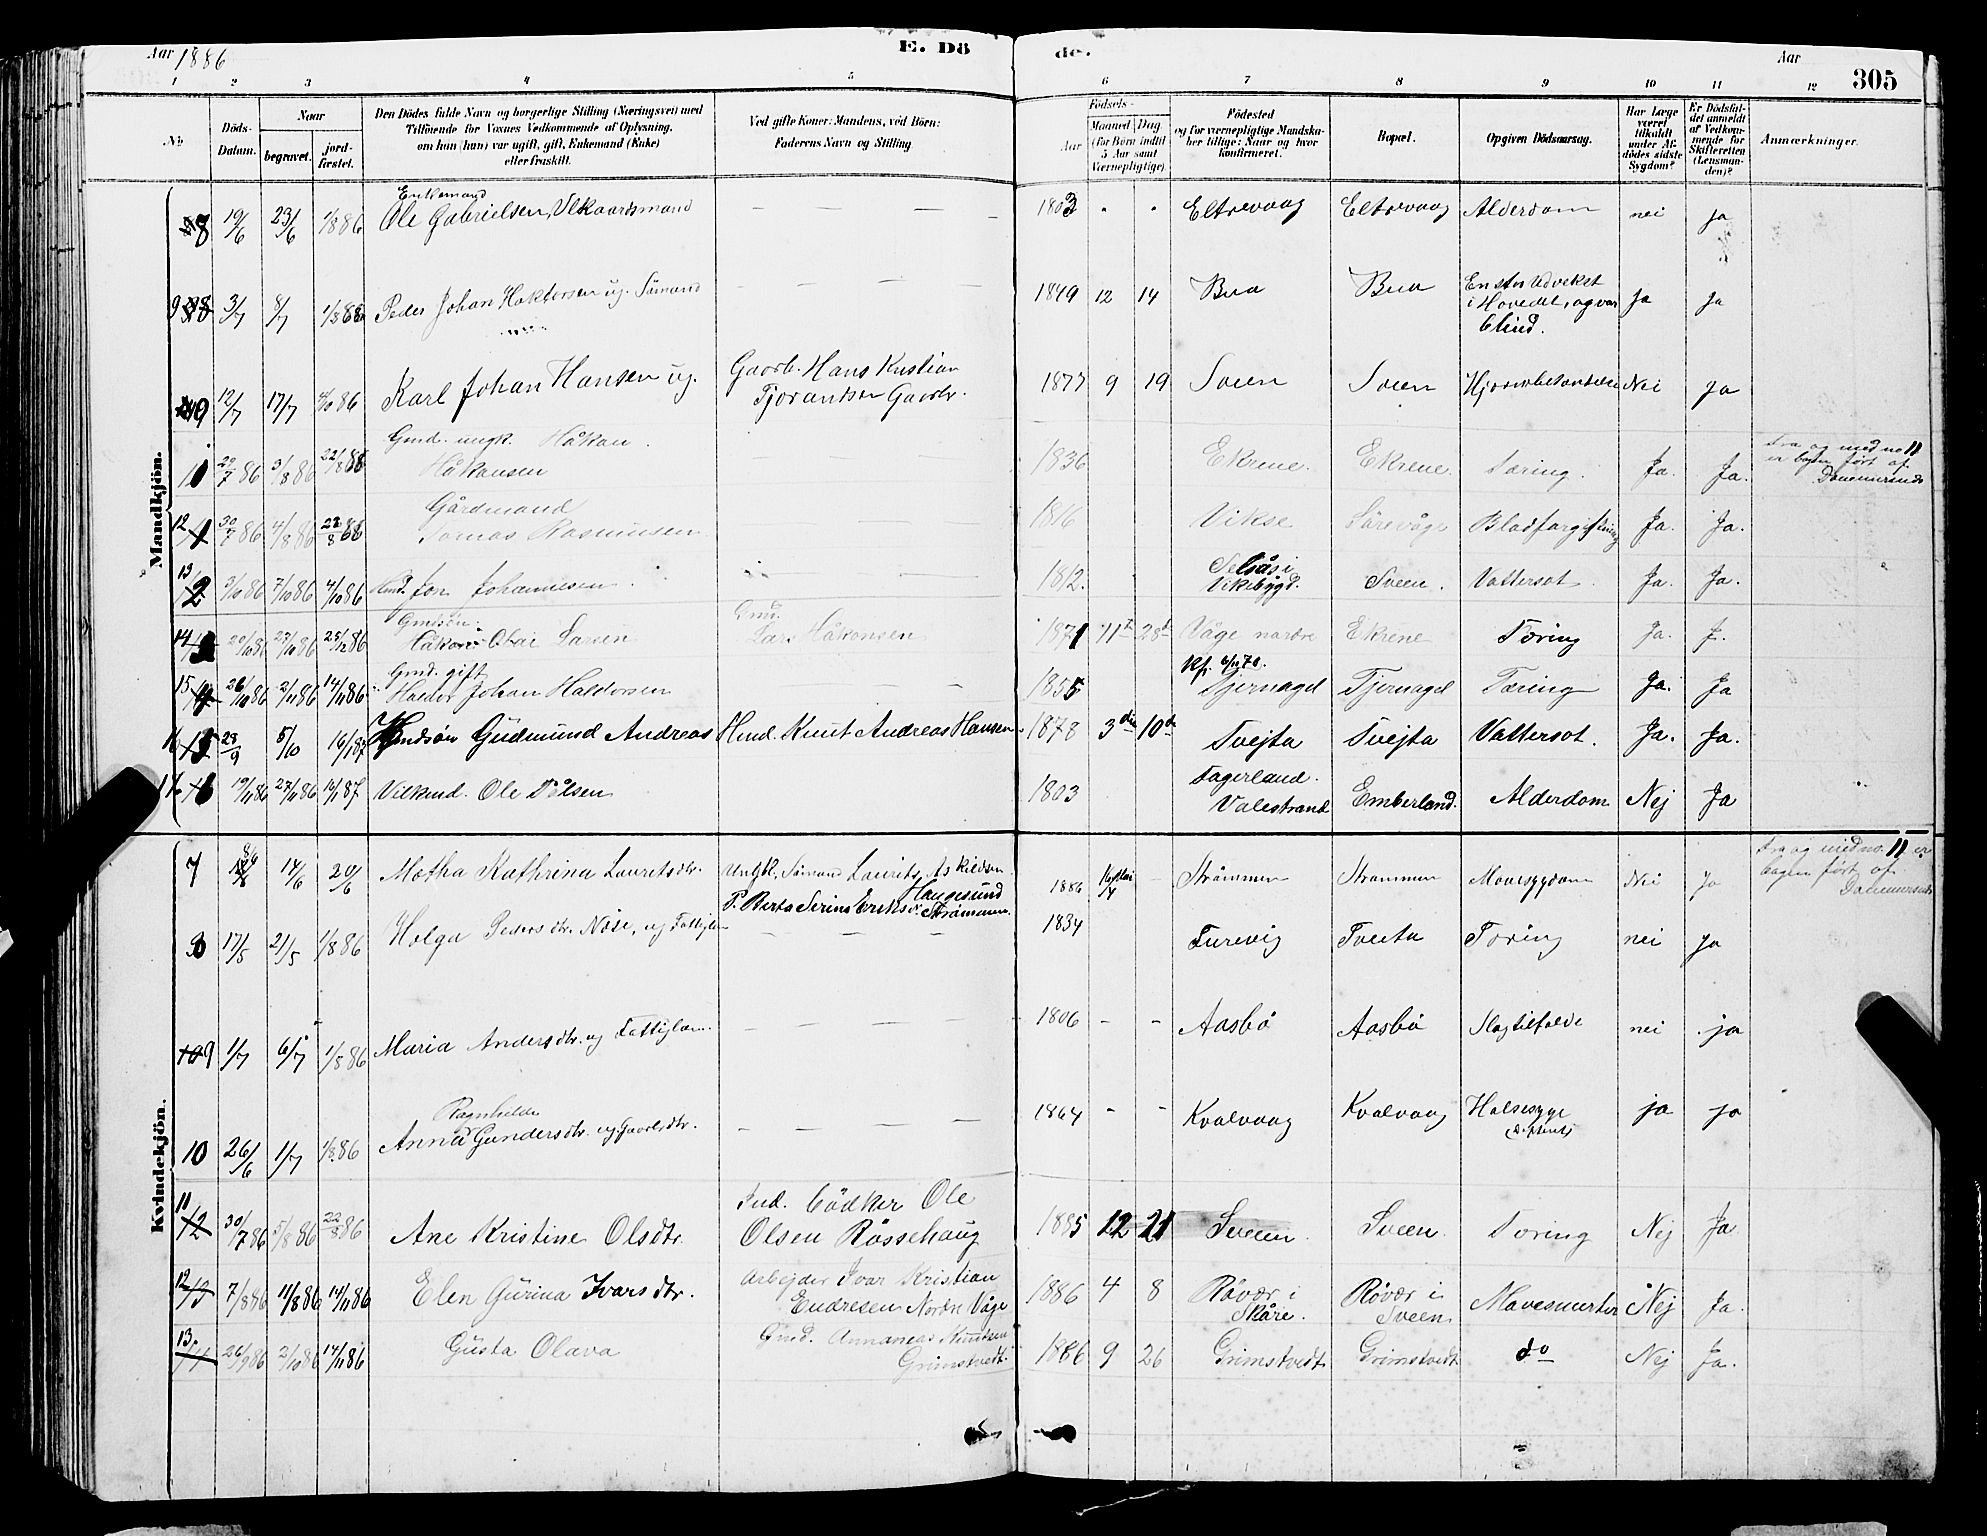 Aar 1886
E. Dö
de.
Aar
305
1 2 3 4 5 6 7 8 9 10 11 12
No
Döds-
Datum.
Naar
begravet.
jord-
fæstet.
Den Dödes fulde Navn og borgerlige Stilling (Næringsvei) med
Tilföiende for Voxnes Vedkommende af Oplysning,
om han (hun) var ugift, gift, Enkemand (Enke)
eller fraskilt.
Ved gifte Koner: Mandens, ved Börn:
Faderens Navn og Stilling
Födsels-
Aar
Maaned
Dag
(for Börn indtil
5 Aar samt
Værnepligtige)
Födested
og for værnepligtige Mandska-
ber tillige: Naar og hvor
konfirmeret.
Bopæl.
Opgiven Dödsaarsag.
Har Læge
været
tilkaldt
under Af-
dödes sidste
Sygdom?
Er Dödsfal-
det anmeldt
af Vedkom-
mende for
Skifteretten
(Lensman-
den)?
Anmærkninger.
Mandkjön.
Enkemand
8 19/6 23/6 1/8 86 Ole Gabrielsen, Vlkaardsmand — — — — 1803 Eltrevaag Eltrevaag Alderdom nei ja
9 3/7 8/7 1/8 86 Peder Johan Haktorsen ug. Sömand — — — 1849 12 14 Bua Bua En stor Udvekst
i Hovedet, og var
blind. Ja Ja
9 12/7 17/7 86 Karl Johan Hansen ug. Gaarb. Hans Kristian
Tjorandsen Gaarbr. 1877 9 19 Sveen Sveen Nei Ja
10 29/7 86 3/8 86 22/8 86 Gmd. ungk. Håkan
Håkansen — — — 1836 Ekrene. Ekrene. Tæring. Ja. Ja. Fra og med no 11
er bogen ført af
12 30/7 86 4/8 86 22/8 86 Gårdmand
Tomas Rasmussen — — — 1816 Vikse Särevåge Blodforgiftning Ja. Ja.
13 3/10 86 7/10 86 4/10 86 Jon Johannesen — — 1812. i
Vikebygd. Sveen. Vattersot. Ja. Ja.
14 20/10 86 27/10 86 25/12 86 Gmdsön.
Håkon Obai Larsen Gmd.
Lars Håkonsen 1871 11te 28de Våge nordre Ekrene Tæring Ja. J.
15 26/10 86 2/11 86 14/11 86 Gmd. gift
Haldor Johan Haldorsen — — 1855 Kf. 6/11 70.
Tjernagel Tjernagel Tæring Ja. Ja
16 28/9 5/10 16/1 87 Hmdsön Gudmund Andreas Hmd. Knut Andreas Hansen 1878 3die 10de Tvejta Tvejta Vattersot. Ja. Ja.
17 19/11 86 27/11 86 16/1 87 Vilkmd. Ole Pålsen 1803 Fagerland.
Valestrand Emberland. Alderdom Nej Ja
Kvindekjön.
7 14/6 20/6 Matha Kathrina Lauritsdtr. Ungk. Sömand Laurits Askildsen
Haugesund
P. Berta Serine Eriksdr. Strømmen. 1886 Strömmen Strammen Mavesygdom Nei Ja Fra og med no. 11 er
bogen ført af
17/5 21/5 1/8 86 Helga Pedersdtr. Nöse, ug Fattiglem — — — — 1834 Furevig Tveita Tæring nei ja
9 1/7 6/7 1/8 86 Maria Andersdtr. ug Fattiglem. — — — — 1806 - - Aasbö Aasbö Slagtilfælde nei ja
10 26/6 1/7 1/8 86 Ragnhilda
Anna Gundersdtr. ug. Gaardbdtr. — — — — 1864 - - Kvalvaag Kvalvaag Halsesyge ja ja
11 30/7 86 5/8 86 22/8 86 Ane Kristine Olsdtr. Ind. bödker Ole
Olsen Røssehaug 1885 12 21 Sveen. Sveen. Tæring Nej Ja
12 7/8 86 11/8 86 14/11 86 Elen Gurina Ivarsdtr. Arbejder Ivar Kristian
Endresen Nordre Våge 1886 4 8 Røvær i
Skåre. Røvær i
Sveen. Mavesmerter Nej Ja.
13 26/9 86 2/10 86 14/11 86 Gusta Olava Gmd. Annaneas Knutsen
Grimstvedt. 1886 9 26 Grimstvedt. Grimstvedt do Nej Ja.